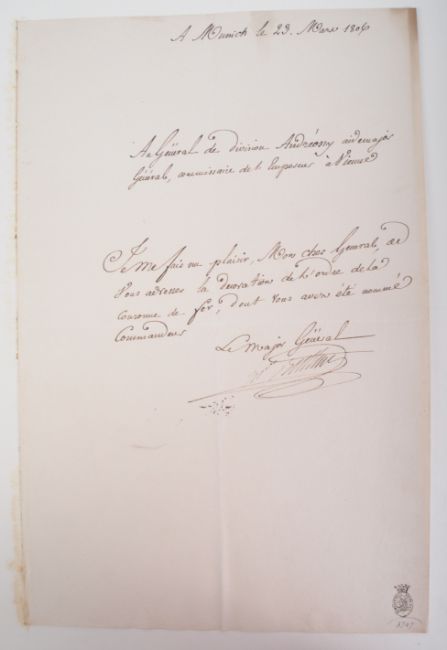 A Munich le 23. Mars 1806
Au Général de division Andréossy aidemajor
Général, commissaire de l'Empereur à Vienne
Je me fais un plaisir, Mon cher Général, de
Vous adresser la décoration de l'ordre de la
couronne de fer, dont vous avez été nommé
Commandeur
Le Major Général